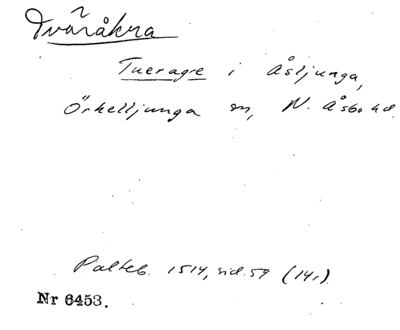 Tvåråkra
Tueragre i Åsljunga,
Örkelljunga sn, N. Åsbo hd.
Palteb. 1514, sid. 59 (14r).
Nr 6453.